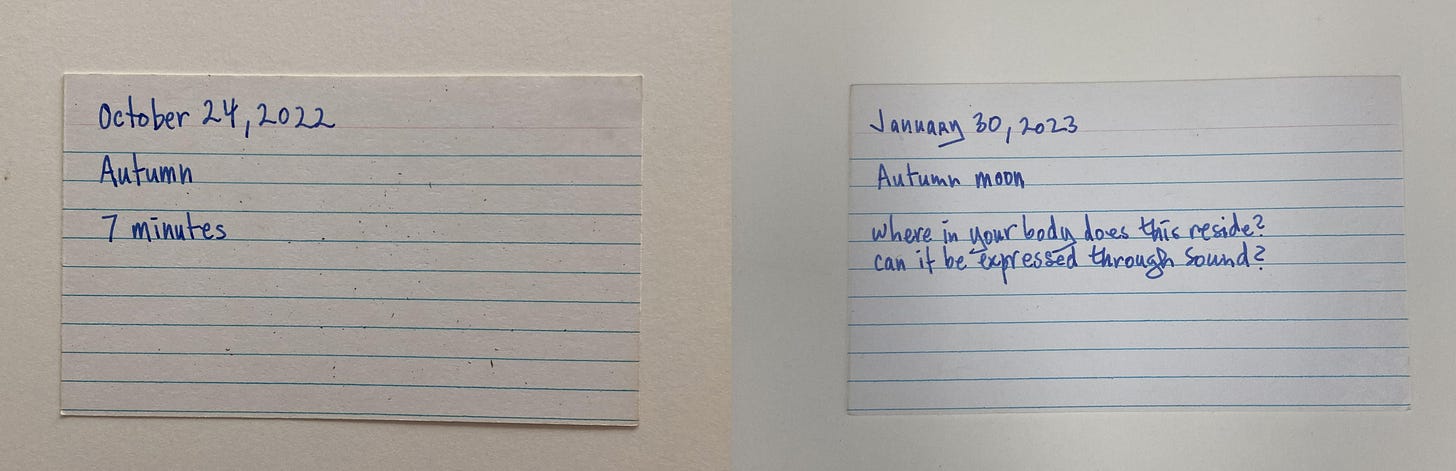 October 24, 2022
Autumn
7 minutes
January 30, 2023
Autumn moon
where in your body does this reside?
can it be expressed through sound?